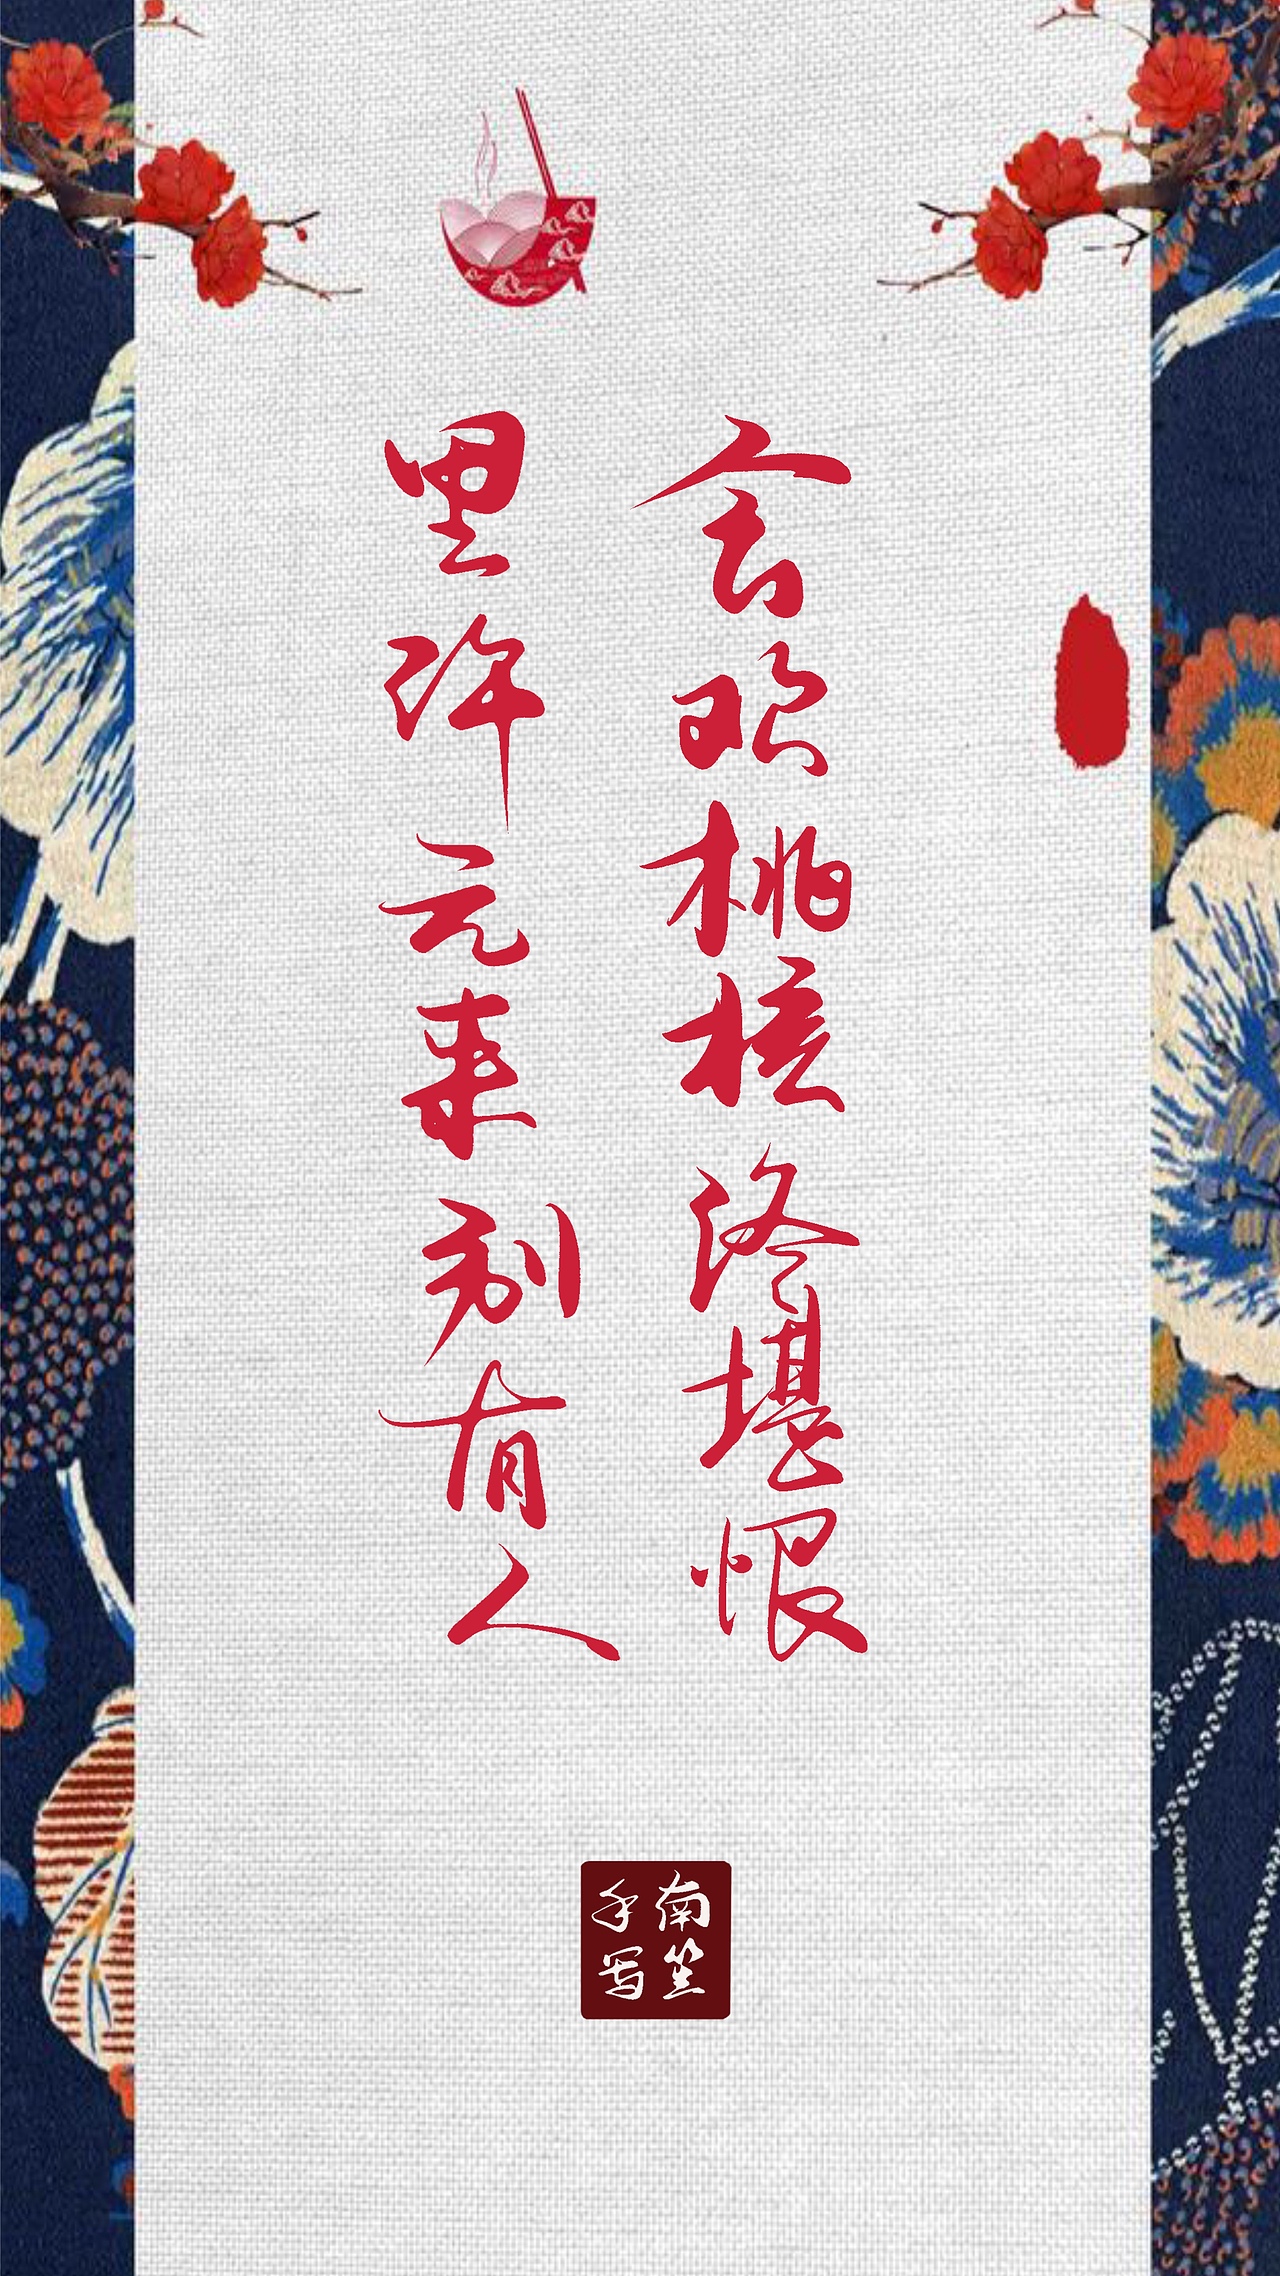 合欢桃核终堪恨
里许元来别有人
南笙
手写